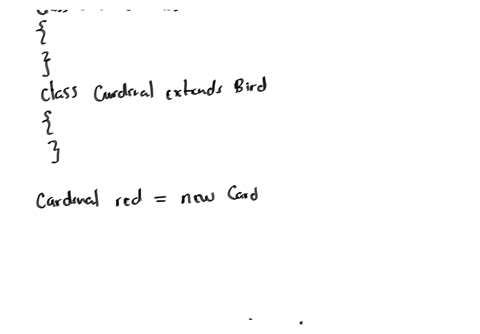 {
}
class Cardinal extends Bird
{
}
Cardinal red = new Card